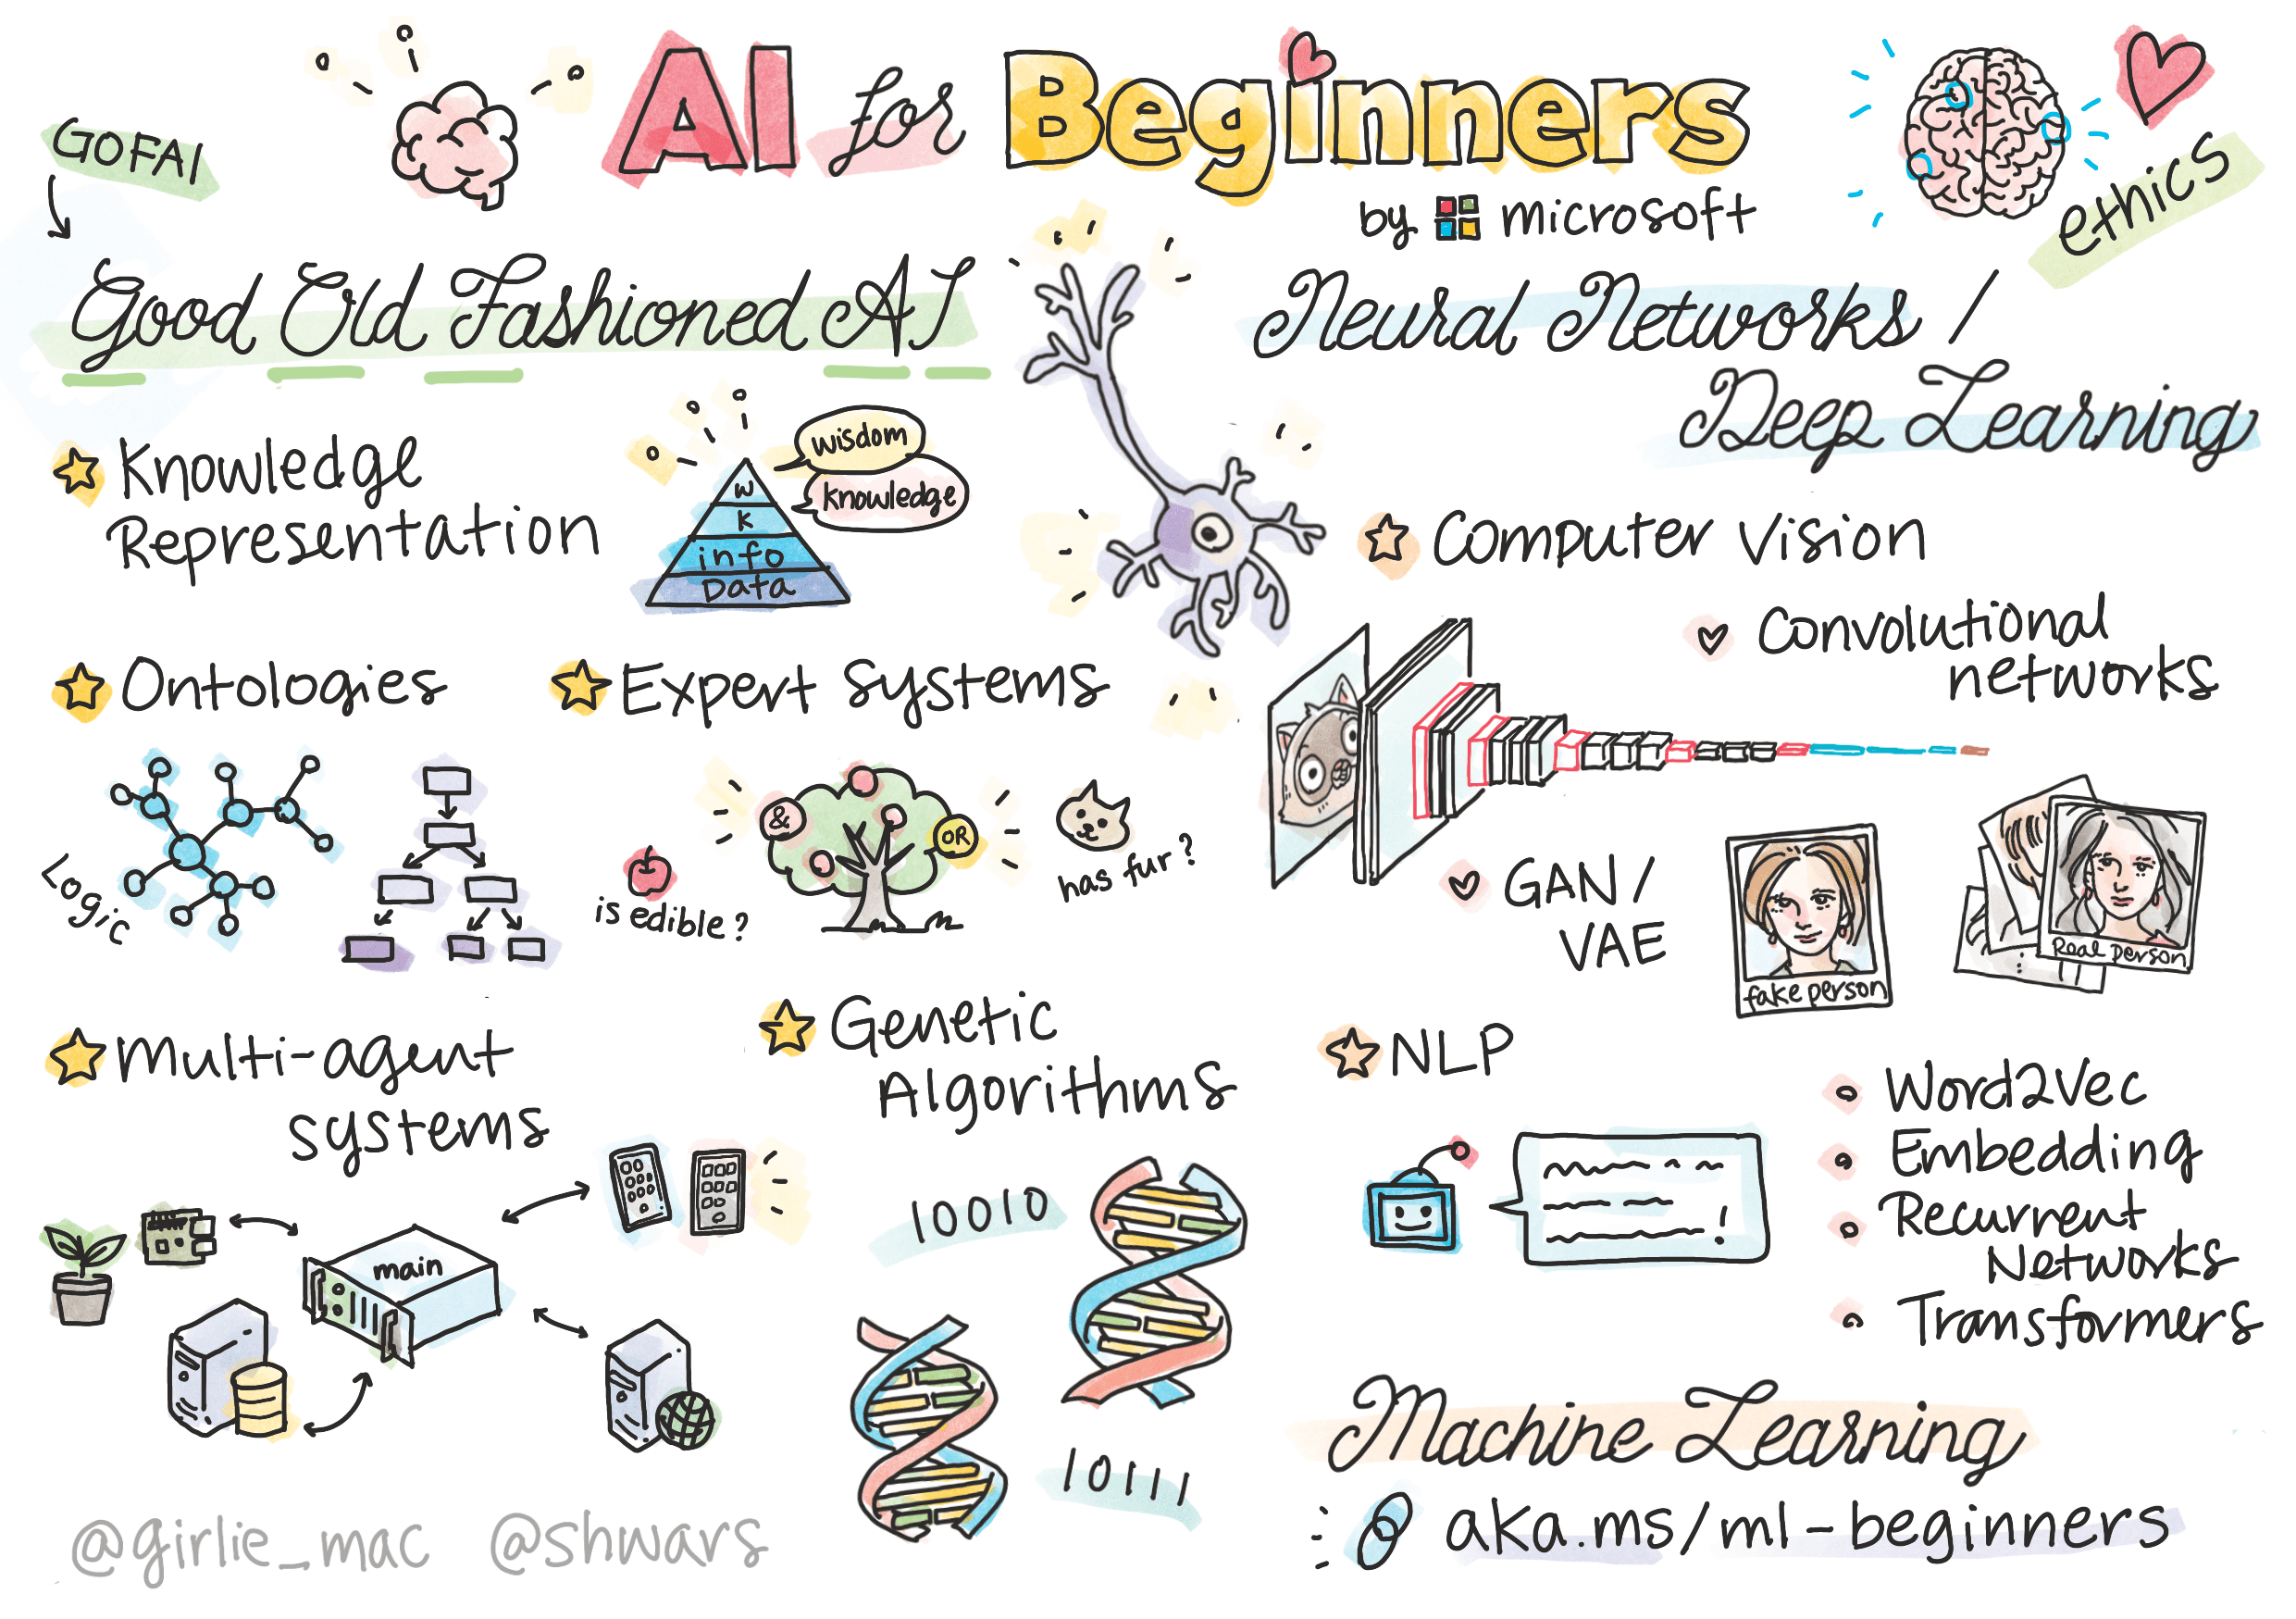 AI for Beginners
by microsoft
GOFAI
Good Old Fashioned AI
Knowledge
Representation
wisdom
knowledge
W
K
info
Data
Ontologies
Logic
Expert systems
&
OR
is edible?
has fur?
Multi-agent
systems
main
Genetic
Algorithms
10010
10111
ethics
Neural Networks /
Deep Learning
Computer Vision
Convolutional
networks
GAN /
VAE
fake person
Real person
NLP
!
Word2Vec
Embedding
Recurrent
Networks
Transformers
Machine Learning
aka.ms/ml-beginners
@girlie_mac @shwars